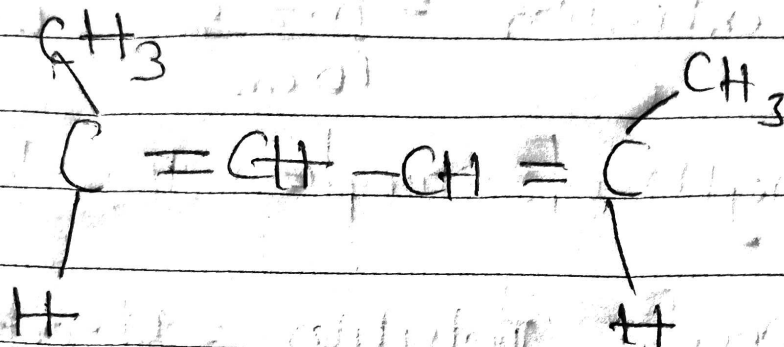 CH3 CH3
C = CH - CH = C
H H